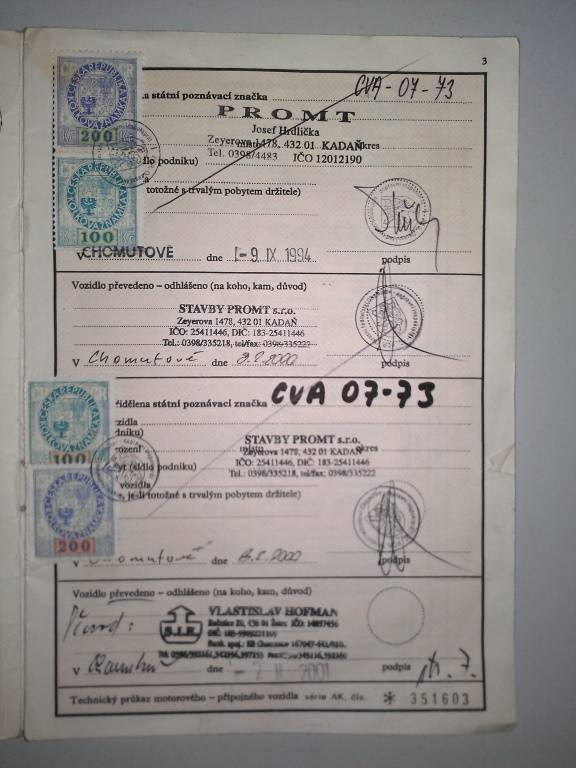 3
ČESKÁ REPUBLIKA
KOLKOVÁ ZNÁMKA
200
la státní poznávací značka CVA - 07 - 73
PROMT
Josef Hrdlička
Zeyerova 1478, 432 01 KADAŇ okres
Tel. 0398/4483 IČO 12012190
(sídlo podniku)
ČESKÁ REPUBLIKA
KOLKOVÁ ZNÁMKA
100
totožné s trvalým pobytem držitele)
V CHOMUTOVĚ dne 1-9. IX. 1994
podpis
Vozidlo převedeno – odhlášeno (na koho, kam, důvod)
STAVBY PROMT s.r.o.
Zeyerova 1478, 432 01 KADAŇ
IČO: 25411446, DIČ: 183-25411446
Tel.: 0398/335218, tel/fax: 0398/335222
v Chomutově dne 2000
podpis
ČESKÁ REPUBLIKA
KOLKOVÁ ZNÁMKA
100
idělena státní poznávací značka CVA 07-73
ozidla
dniku)
STAVBY PROMT s.r.o.
rození místo okres
Zeyerova 1478, 432 01 KADAŇ
yt (sídlo podniku)
IČO: 25411446, DIČ: 183-25411446
vozidla
Tel.: 0398/335218, tel/fax: 0398/335222
e, je-li totožné s trvalým pobytem držitele)
ČESKÁ REPUBLIKA
KOLKOVÁ ZNÁMKA
200
Chomutově dne 2000
podpis
Vozidlo převedeno – odhlášeno (na koho, kam, důvod)
VLASTISLAV HOFMAN
S.I.R.
v dne 2001
podpis
Technický průkaz motorového – přípojného vozidla série AK, čís. * 351603